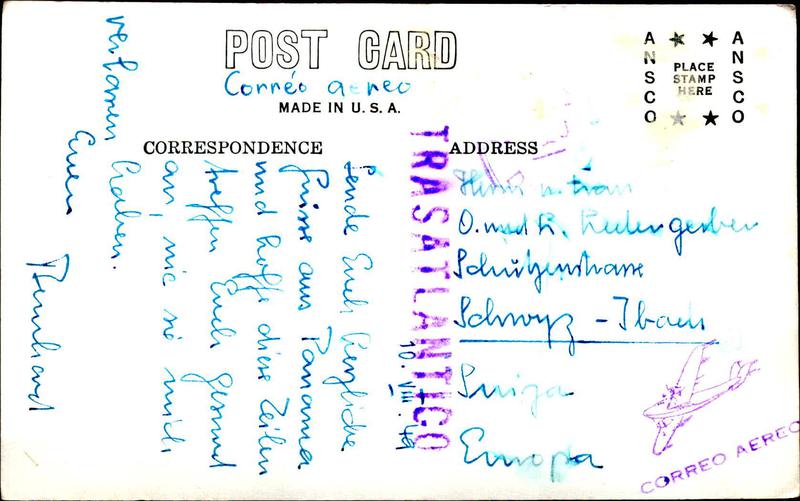 POST CARD
Corréo aereo
MADE IN U.S.A.
ANSCO
PLACE
STAMP
HERE
ANSCO
CORRESPONDENCE
ADDRESS
TRASATLANTICO
10.VIII.49
Sende Euch herzliche
Grüsse aus Panama
und hoffe diese Zeilen
treffen Euch gesund
an, wie sie mich
verlassen haben.
Euer
Herrn u. Frau
O. und R.
Schützenstrasse
Schwyz - Ibach
Suiza
Europa
CORREO AEREO